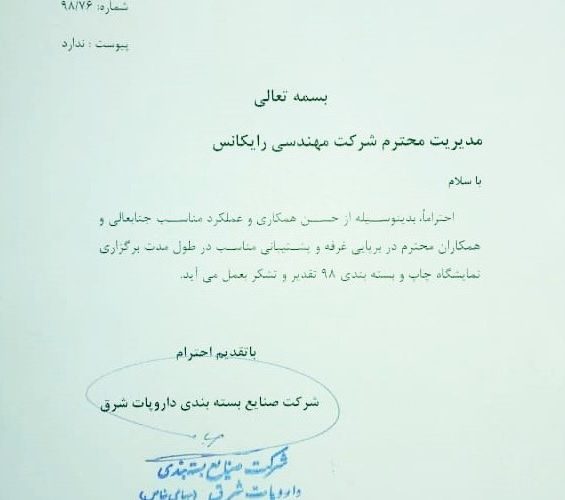 شماره: ۹۸/۷۶
پیوست : ندارد
بسمه تعالی
مدیریت محترم شرکت مهندسی رایکانس
با سلام
احتراماً، بدینوسیله از حسن همکاری و عملکرد مناسب جنابعالی و
همکاران محترم در برپایی غرفه و پشتیبانی مناسب در طول مدت برگزاری
نمایشگاه چاپ و بسته بندی ۹۸ تقدیر و تشکر بعمل می آید.
باتقدیم احترام
شرکت صنایع بسته بندی داروپات شرق
شرکت صنایع بسته‌بندی
داروپات شرق (سهامی خاص)